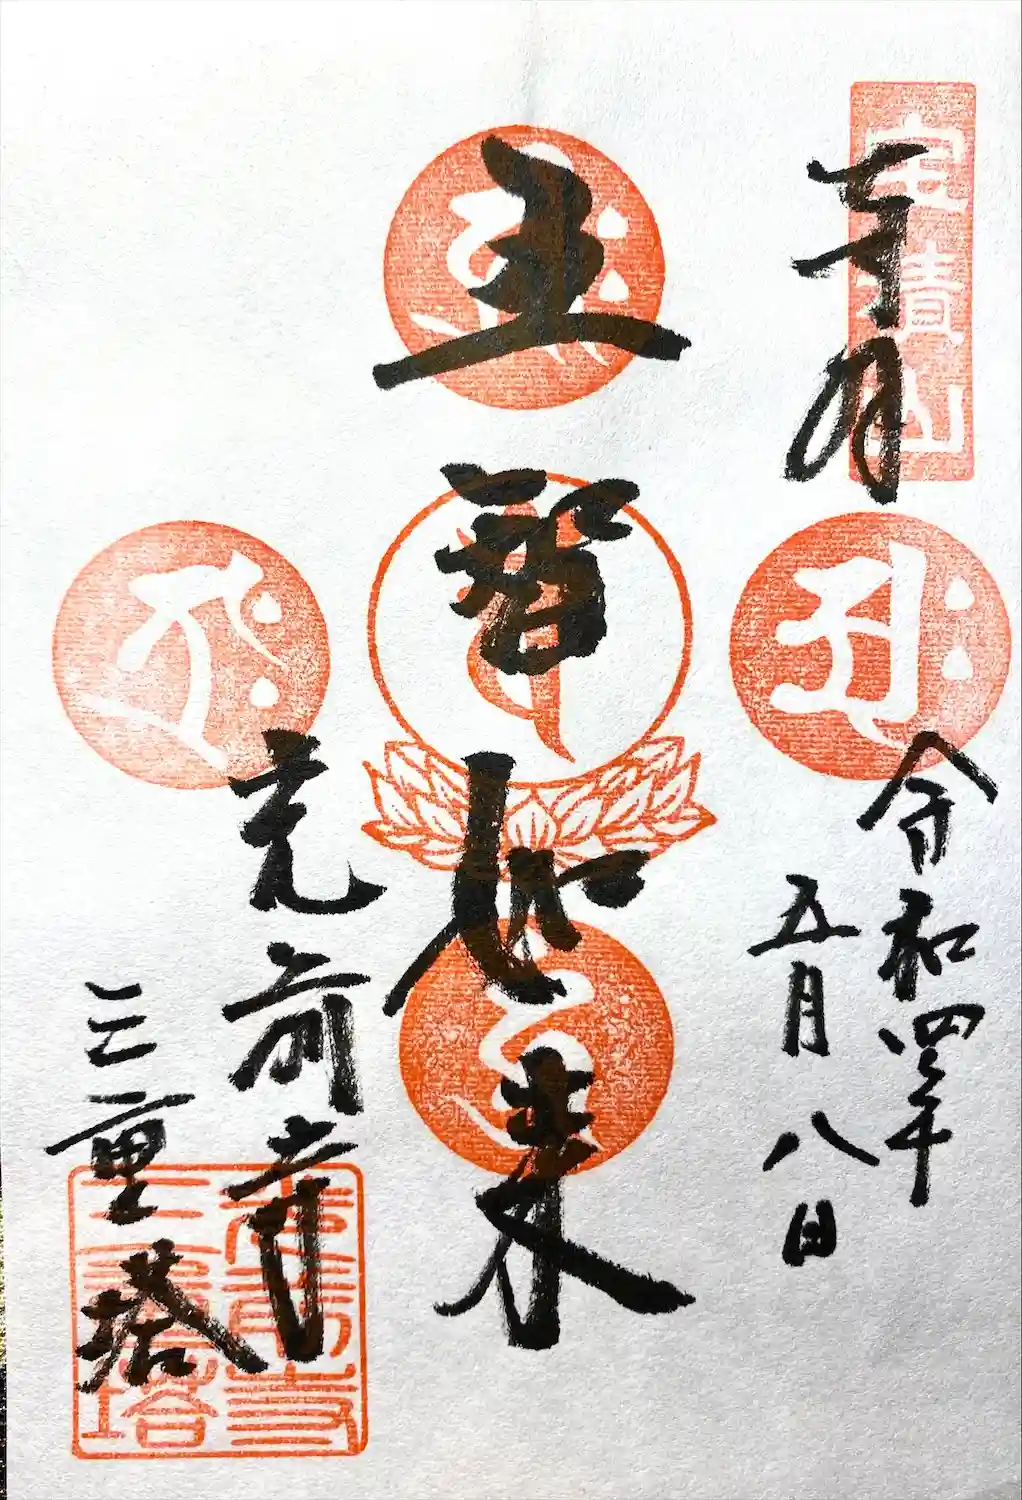 宝積山
奉拝
令和四年
五月八日
五智如来
光前寺
三重塔
光前寺
三重塔